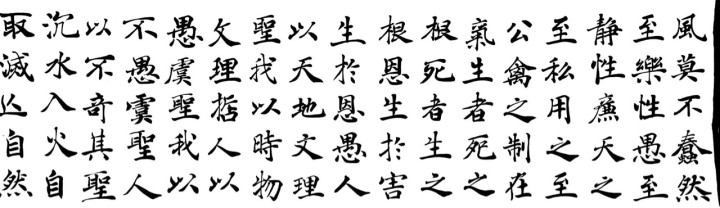 風莫不蠢然
至樂性愚至
靜性廉天之
至私用之至
公禽之制在
氣生者死之
根死者生之
根恩生於害
生於恩愚人
以天地文理
聖我以時物
文理哲人以
愚虞聖我以
不愚虞聖人
以不奇其聖
沉水入火自
取滅亡自然